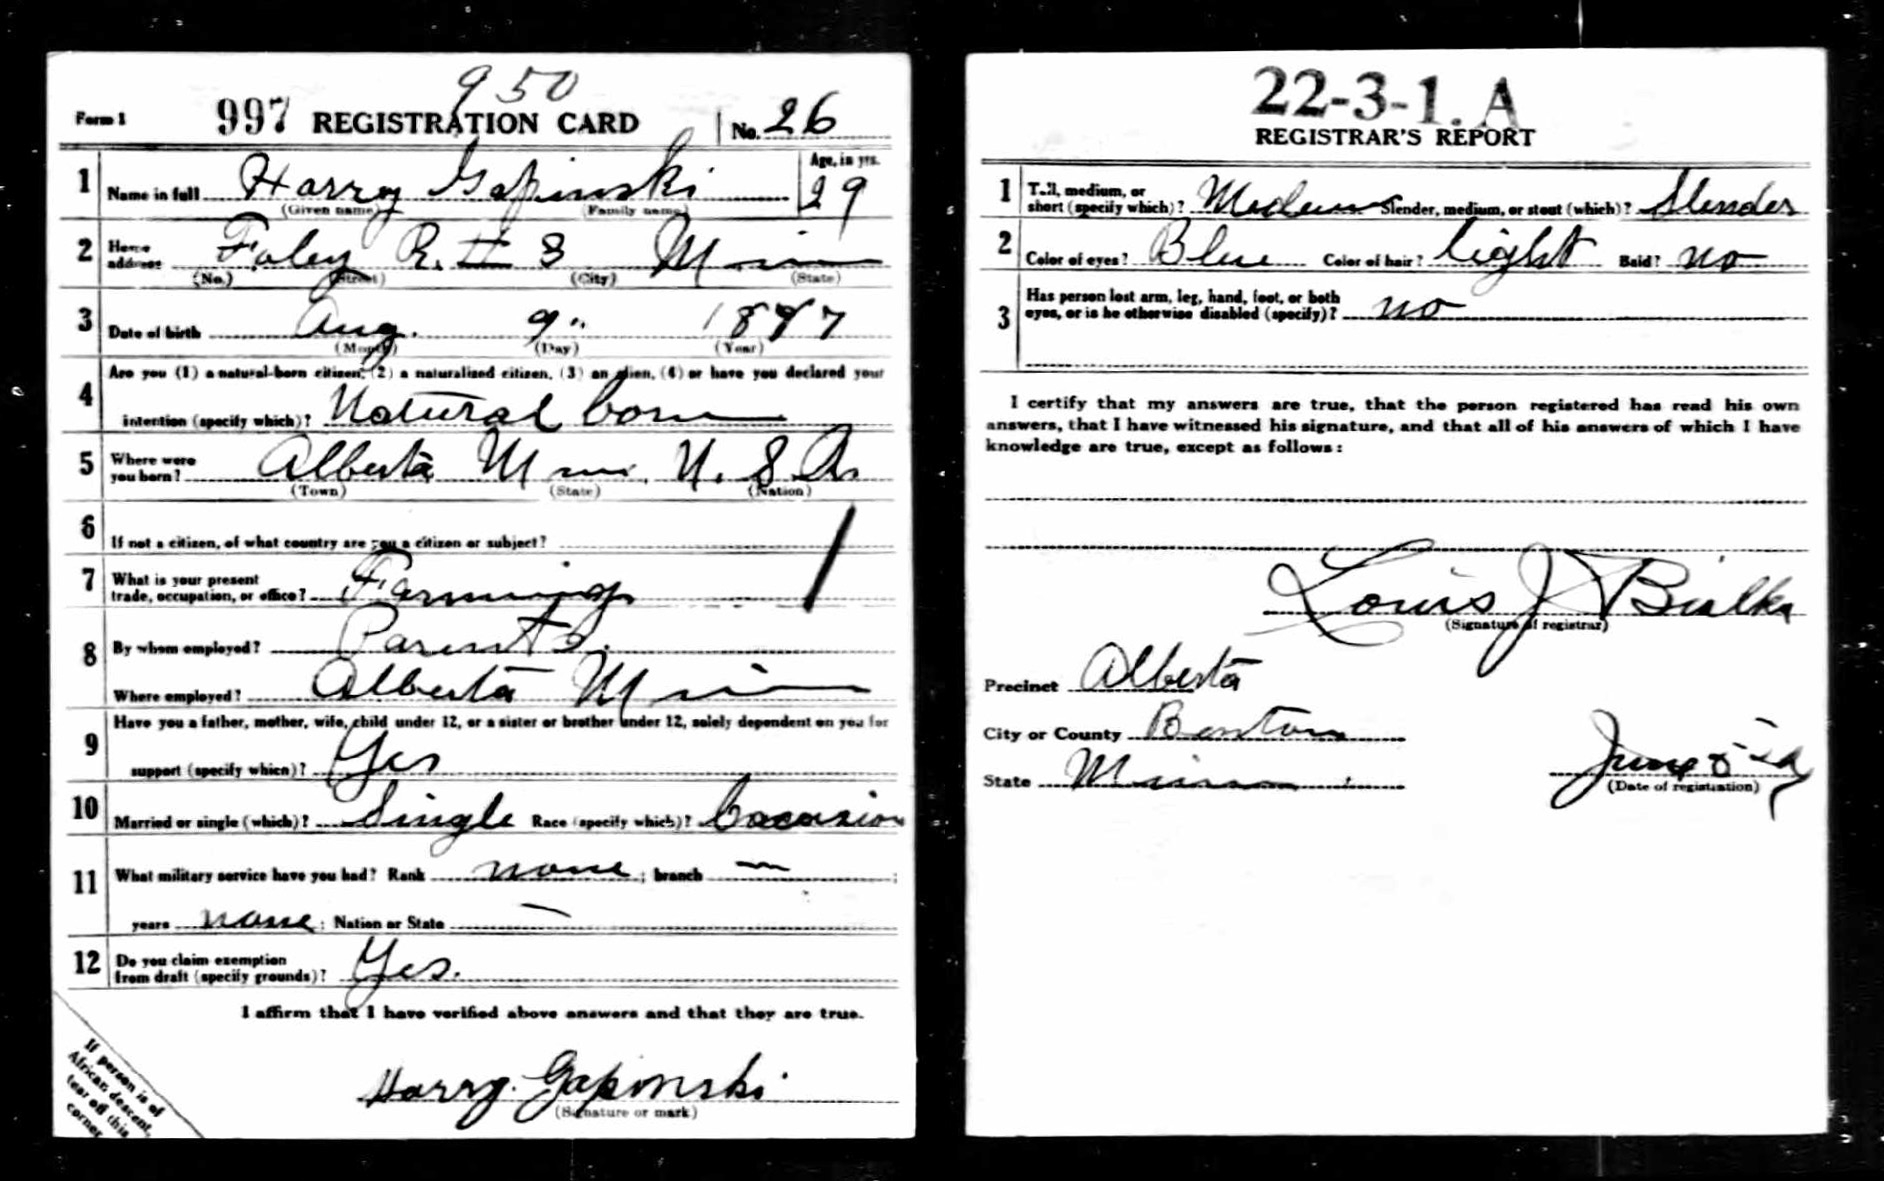 950
Form 1 997 REGISTRATION CARD No. 26
1 Name in full Harry Gapinski Age, in yrs. 29
(Given name) (Family name)
2 Home address Foley R. # 3 Minn
(No.) (Street) (City) (State)
3 Date of birth Aug. 9" 1887
(Month) (Day) (Year)
4 Are you (1) a natural-born citizen, (2) a naturalized citizen, (3) an alien, (4) or have you declared your
intention (specify which)? Natural born
5 Where were you born? Alberta Minn. U. S. A.
(Town) (State) (Nation)
6 If not a citizen, of what country are you a citizen or subject?
7 What is your present trade, occupation, or office? Farming
8 By whom employed? Parents.
Where employed? Alberta Minn
9 Have you a father, mother, wife, child under 12, or a sister or brother under 12, solely dependent on you for
support (specify which)? Yes
10 Married or single (which)? Single Race (specify which)? Cocasion
11 What military service have you had? Rank none ; branch —
years none ; Nation or State —
12 Do you claim exemption from draft (specify grounds)? Yes.
I affirm that I have verified above answers and that they are true.
Harry Gapinski
(Signature or mark)
If person is of
African descent,
tear off this
corner
22-3-1. A
REGISTRAR'S REPORT
1 Tall, medium, or short (specify which)? Medium Slender, medium, or stout (which)? Slender
2 Color of eyes? Blue Color of hair? light Bald? no
3 Has person lost arm, leg, hand, foot, or both eyes, or is he otherwise disabled (specify)? no
I certify that my answers are true, that the person registered has read his own
answers, that I have witnessed his signature, and that all of his answers of which I have
knowledge are true, except as follows:
Louis J Bialka
(Signature of registrar)
Precinct Alberta
City or County Benton
State Minn.
June 5
(Date of registration)